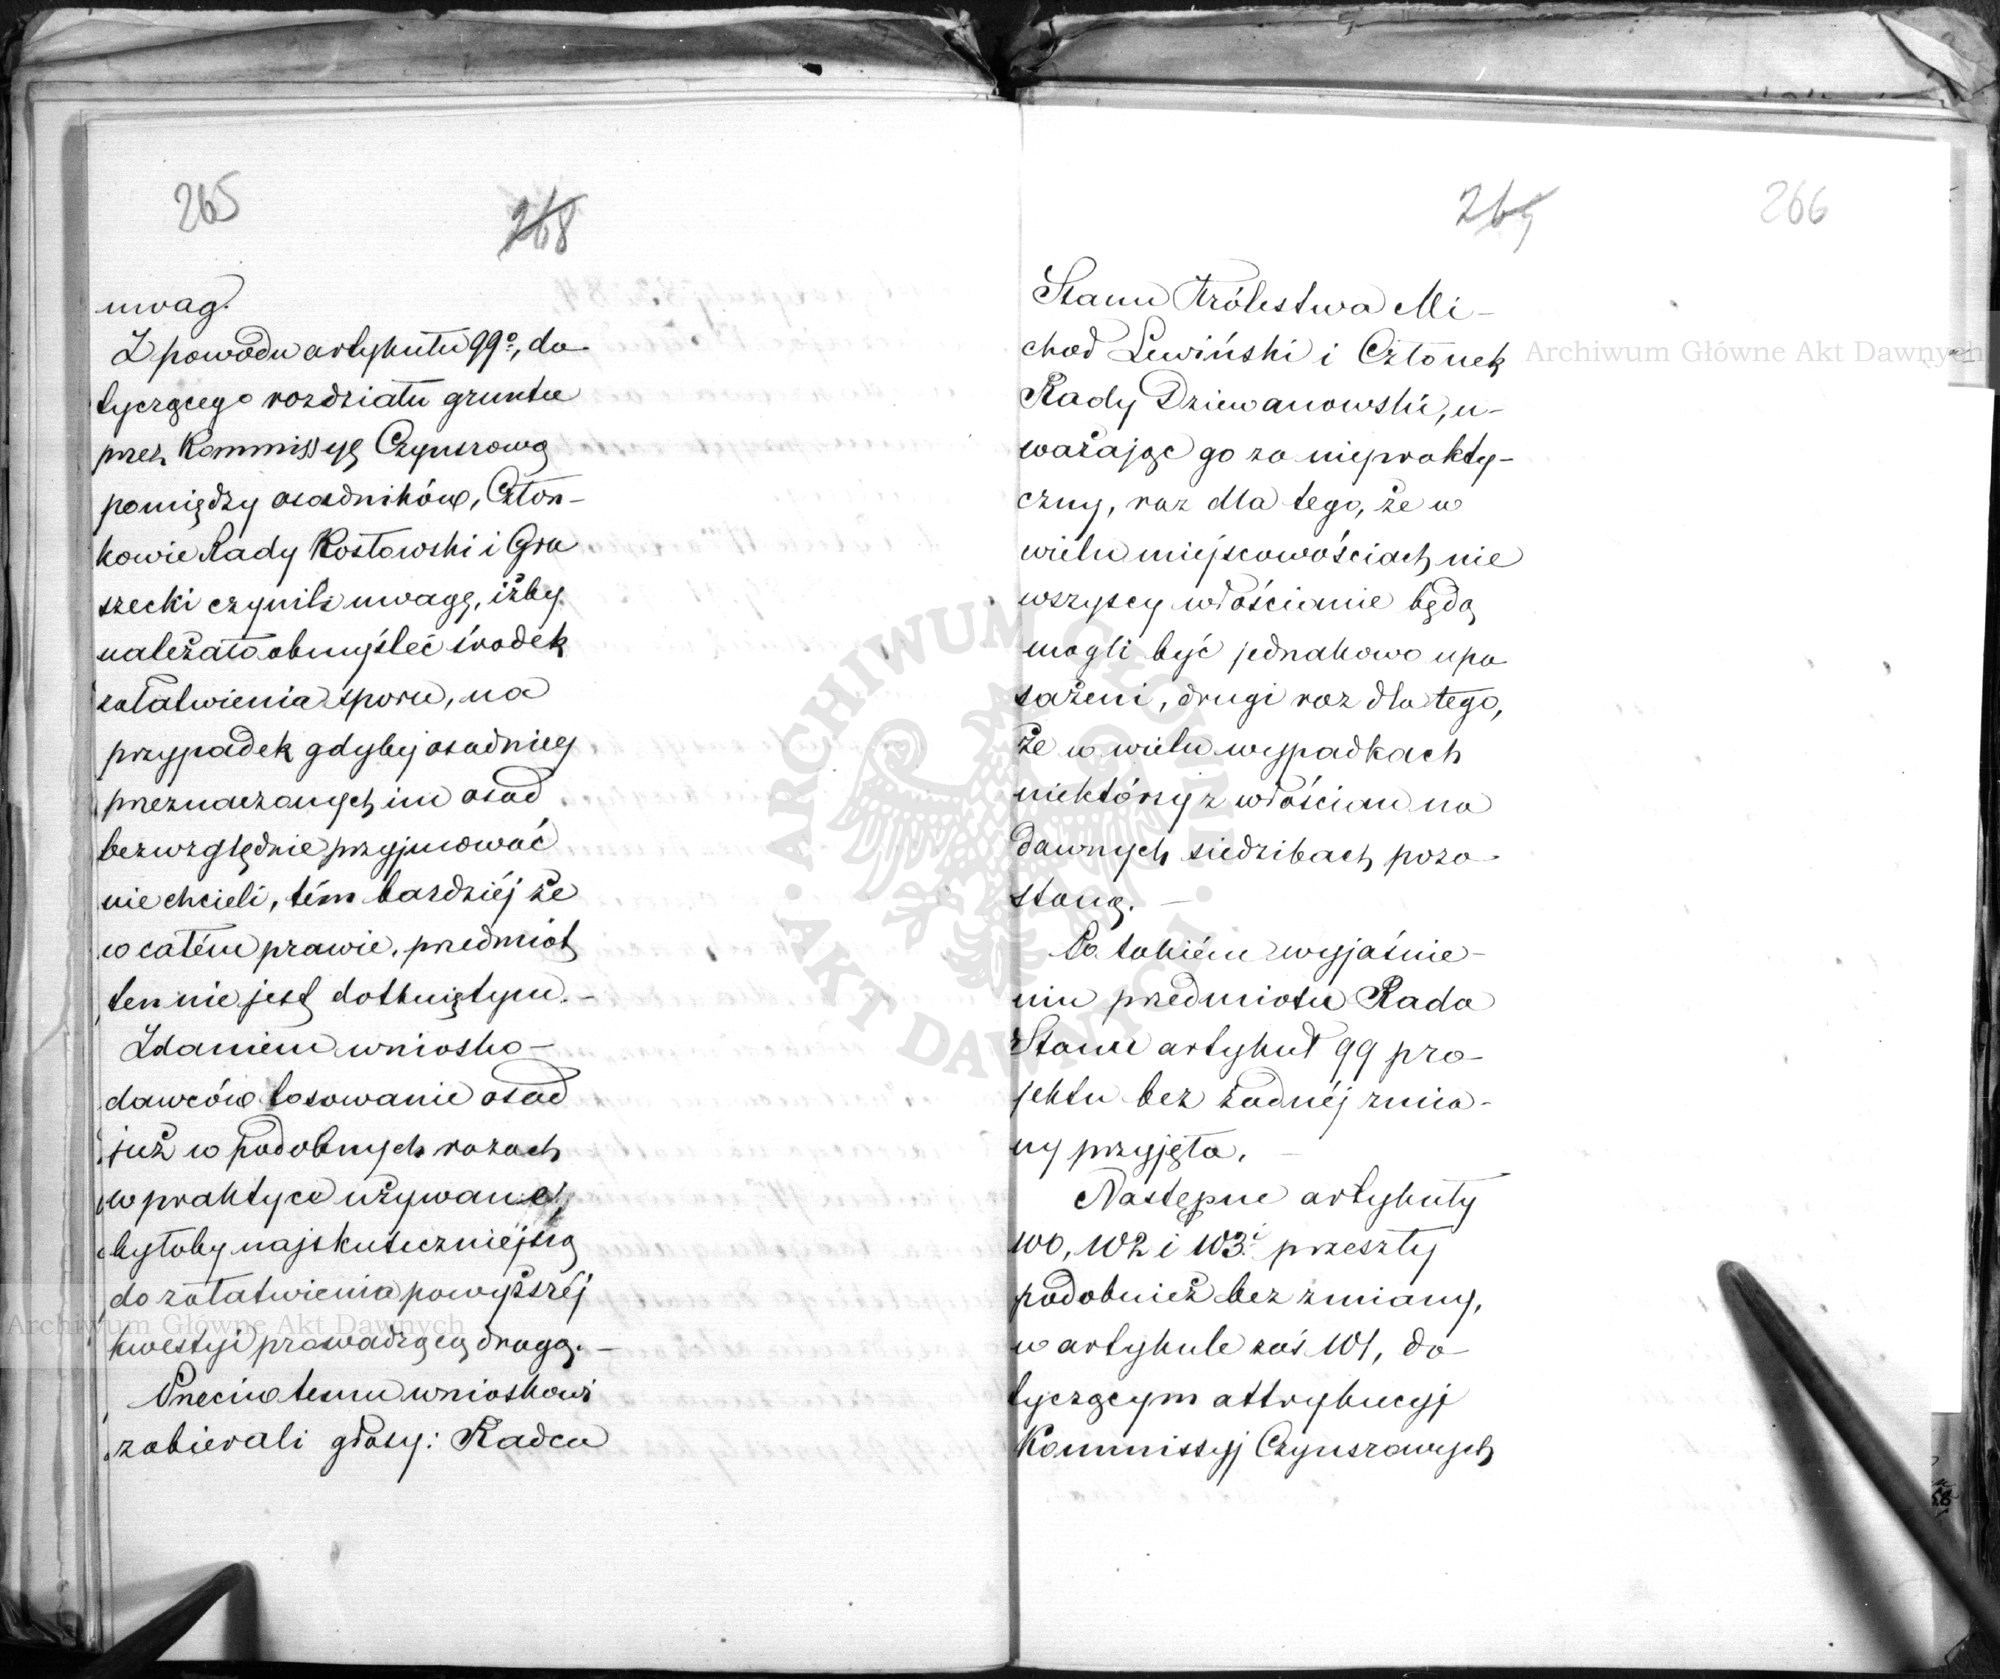 265
268
uwag.
Z powodu artykułu 99º, do-
tyczącego rozdziału gruntu
przez Kommissyę Czynszową
pomiędzy osadników, Człon-
kowie Rady Kosłowski i Gru
szecki czynili uwagę, iżby
należało obmyśleć środek
załatwienia sporu, na
przypadek gdyby osadnicy
przeznaczonych im osad
bezwzględnie przyjmować
nie chcieli, tém bardziéj że
w całém prawie, przedmiot
ten nie jest dotkniętym. -
Zdaniem wniosko-
dawców losowanie osad
już w podobnych razach
w praktyce używane,
byłoby najskuteczniéjszą
do załatwienia powyższéj
kwestyi prowadzącą drogą. -
Przeciw temu wnioskowi
zabierali głosy: Radca
269
266
Stanu Królestwa Mi-
chał Lewiński i Członek
Rady Dziewanowski, u-
ważając go za nieprakty-
czny, raz dla tego, że w
wielu miejscowościach nie
wszyscy włościanie będą
mogli być jednakowo upo
sażeni, drugi raz dla tego,
że w wielu wypadkach
niektórzy z włościan na
dawnych siedzibach pozo-
staną. -
Po takiém wyjaśnie-
niu przedmiotu Rada
Stanu artykuł 99 pro-
jektu bez żadnéj zmia-
ny przyjęła. -
Następne artykuły
100, 102 i 103.ⁱ przeszły
podobnież bez zmiany,
w artykule zaś 101, do
tyczącym attrybucyj
Kommissyj Czynszowych
Archiwum Główne Akt Dawnych
Archiwum Główne Akt Dawnych
ARCHIWUM GŁÓWNE AKT DAWNYCH